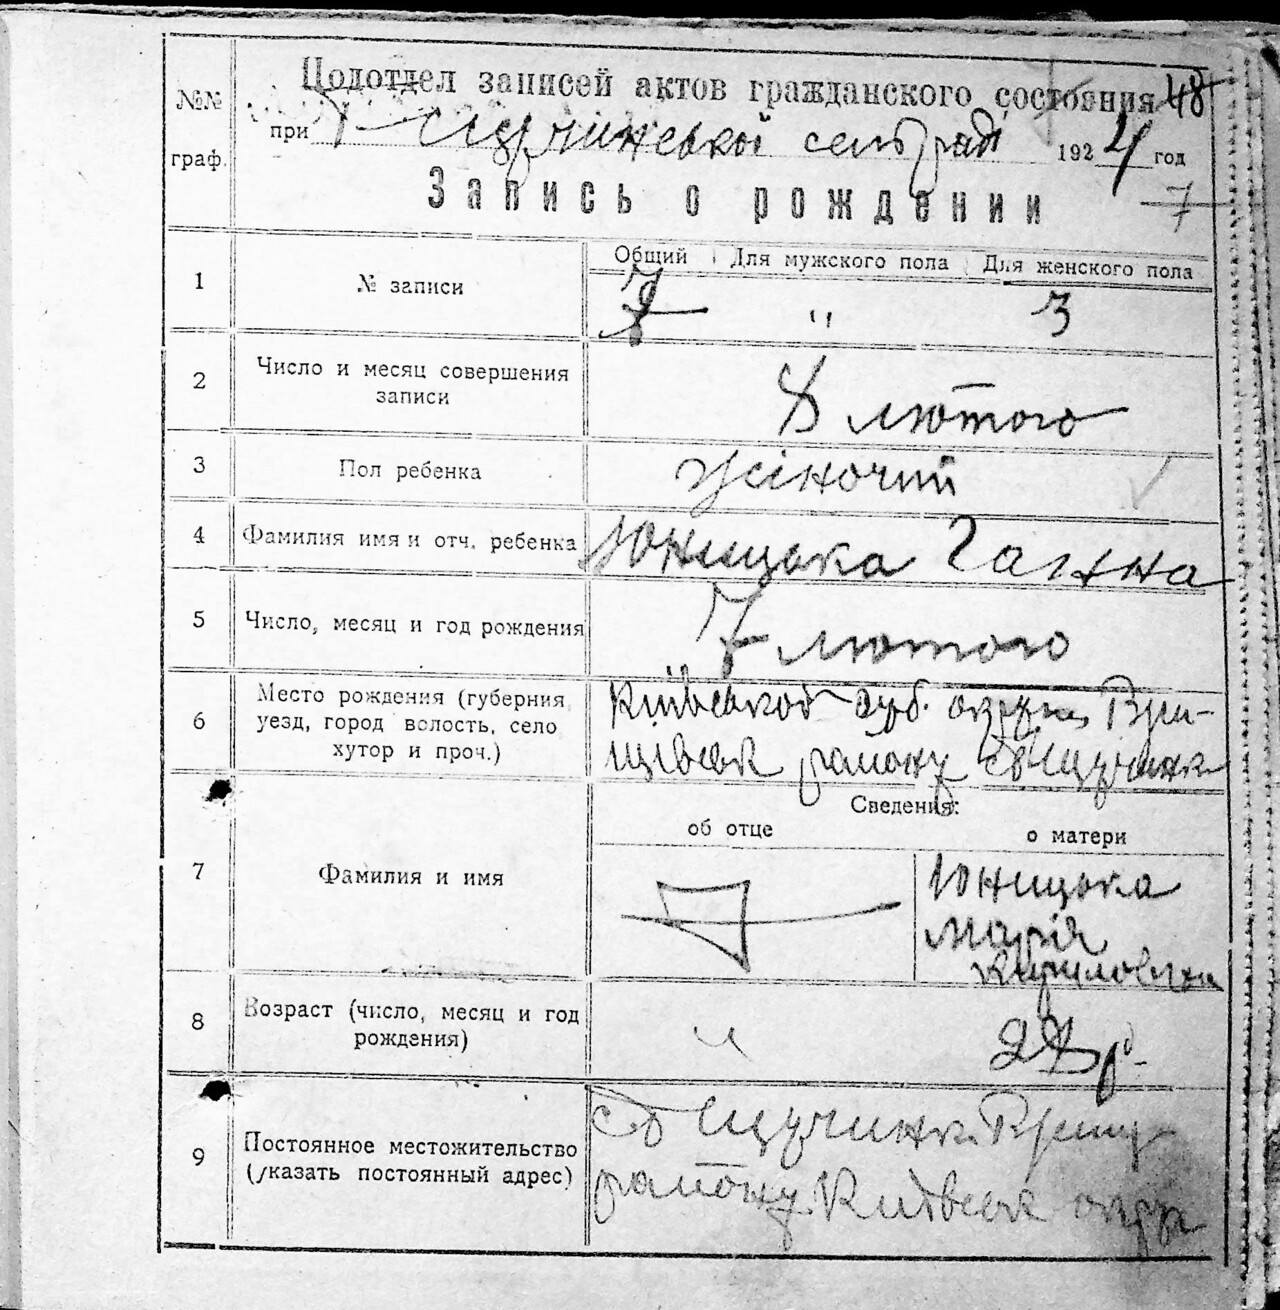 №№ граф.
Подотдел записей актов гражданского состояния 48
при Щучинської сельраді 1924 год
Запись о рождении
7
Общий Для мужского пола Для женского пола
1 № записи 7 " 3
2 Число и месяц совершения записи 8 лютого
3 Пол ребенка жіночий
4 Фамилия имя и отч. ребенка Юницька Ганна
5 Число, месяц и год рождения 7 лютого
6 Место рождения (губерния уезд, город волость, село хутор и проч.)
Київської губ. округи Ржи-
щівськ району с Щучинк
Сведения:
об отце о матери
7 Фамилия и имя
Юницька
Марія
Кириловна
8 Возраст (число, месяц и год рождения) " р.
9 Постоянное местожительство (указать постоянный адрес)
с Щучинк. Ржищ
району Київськ окр